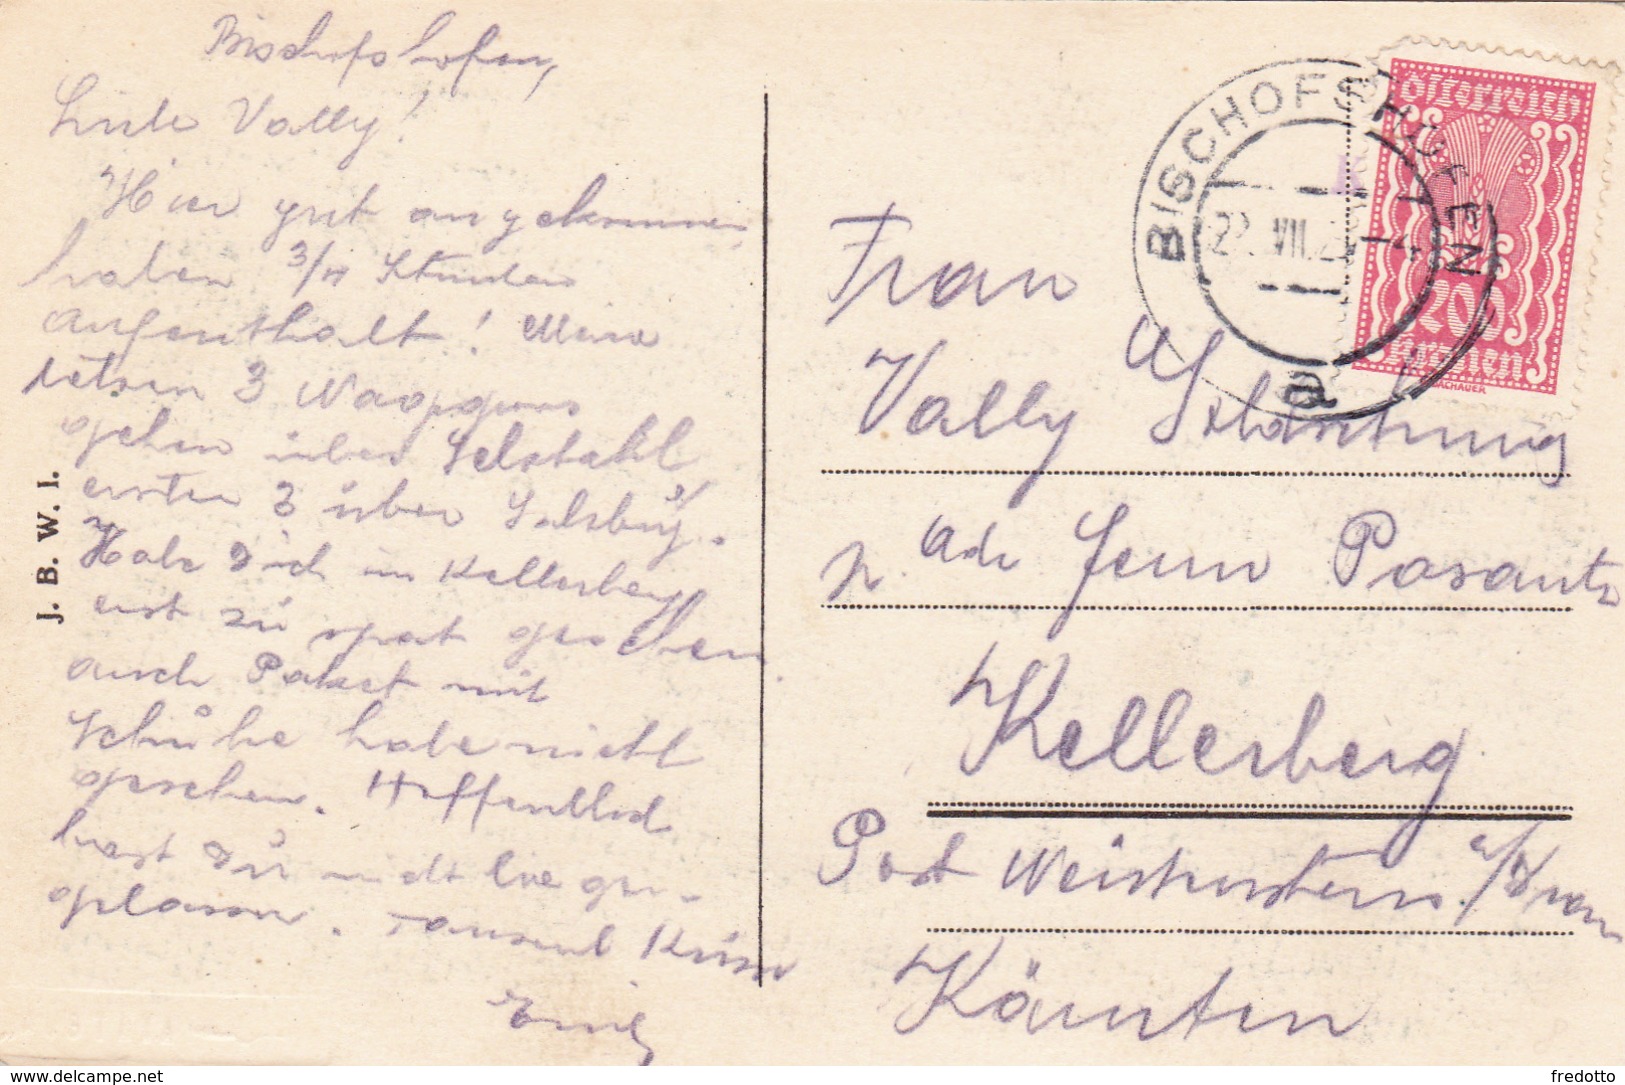 Bischofshofen,
Liebe Vally!
Hier gut angekommen
haben 3/4 Stunden
Aufenthalt! Meine
letzen 3 Waggons
gehen über Selzthal
ersten 3 über Salzburg.
Habe Dich in Kellerberg
erst zu spät gesehen
auch Paket mit
Schuhe habe nicht
gesehen. Hoffentlich
hast Du nicht
gelassen. Tausend Küsse
Emil
J. B. W. I.
BISCHOFSHOFEN
22. VII. 2
a
Österreich
200
Kronen
DACHAUER
Frau
Vally
p. adr Posauts
Kellerberg
Post Weissenstein a/Drau
Kärnten
© delcampe.net
fredotto